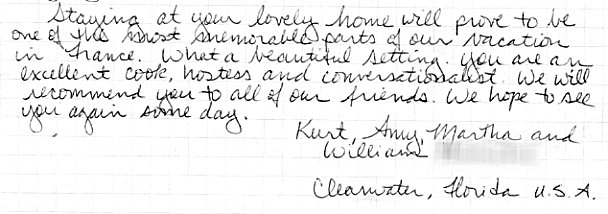 Staying at your lovely home will prove to be
one of the most memorable parts of our vacation
in France. What a beautiful setting. You are an
excellent cook, hostess and conversationalist. We will
recommend you to all of our friends. We hope to see
you again some day.
Kurt, Amy, Martha and
William
Clearwater, Florida U.S.A.